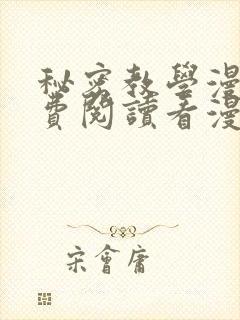 秘密教學漫
費閱讀看漫
宋會庸